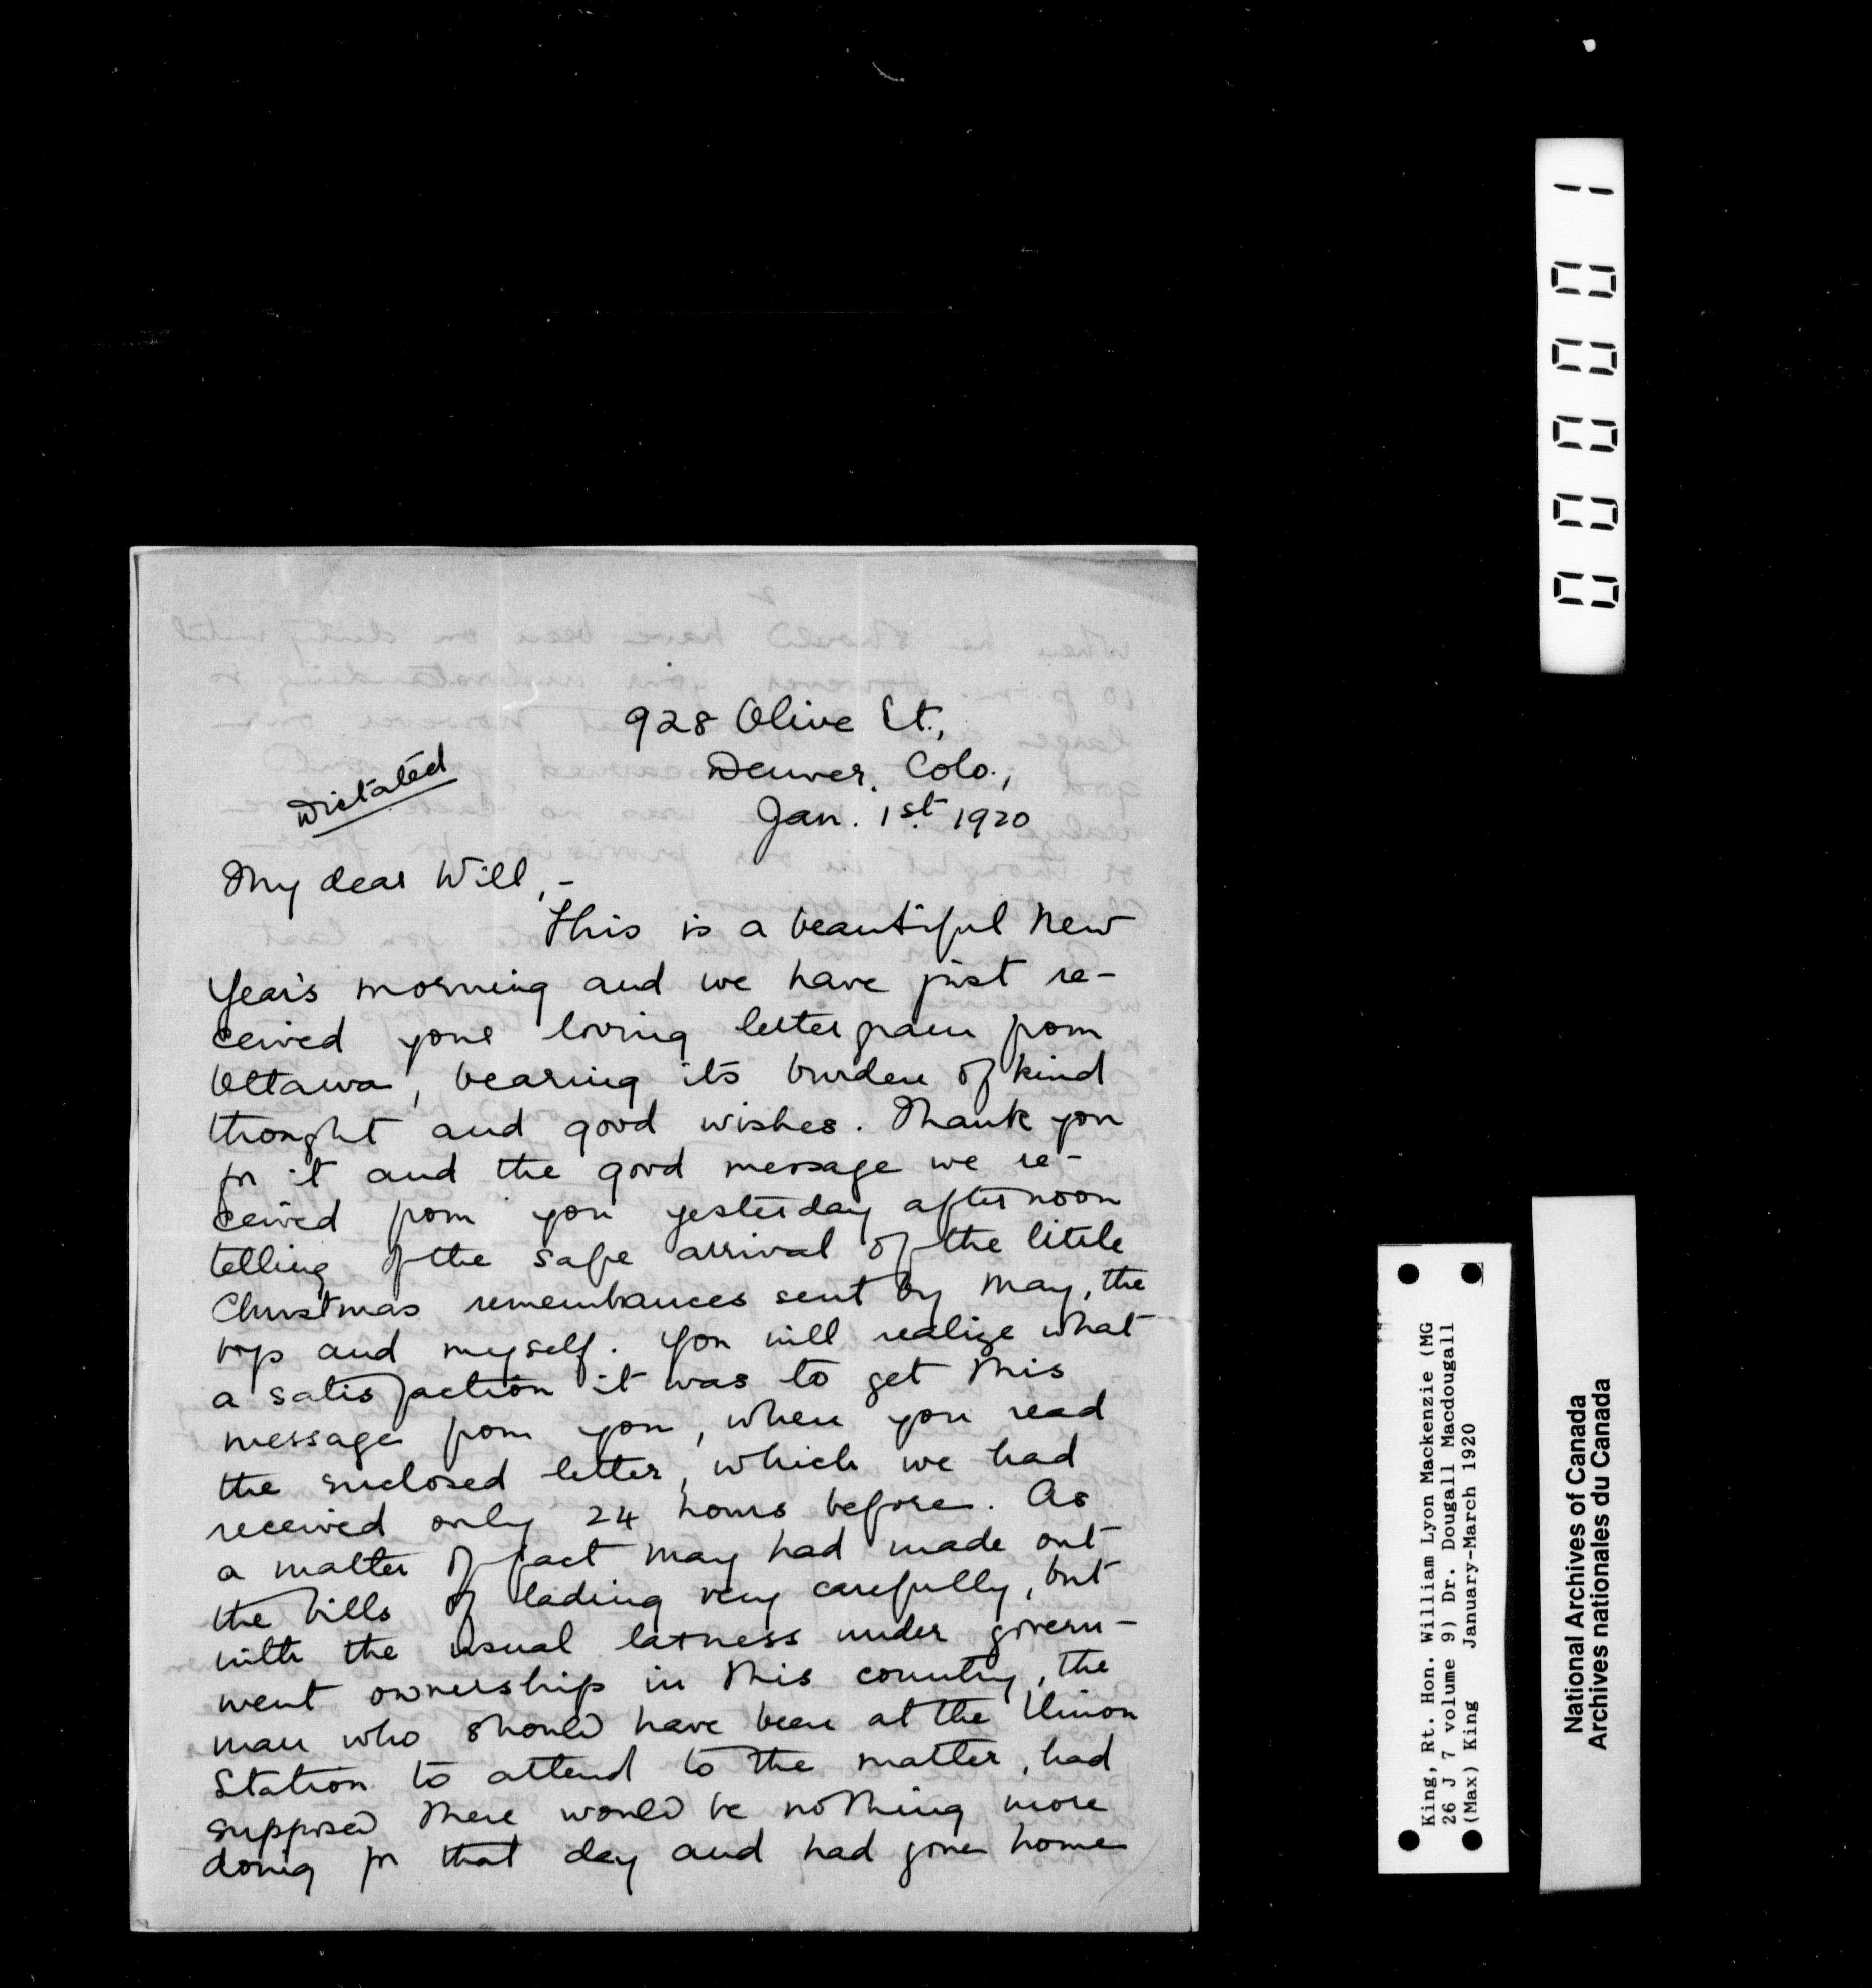 928 Olive St.,
Denver, Colo.,
Jan. 1st 1920
Dictated
My dear Will,-
This is a beautiful New
Year's morning and we have just re-
ceived your loving lettergram from
Ottawa, bearing its burden of kind
thought and good wishes. Thank you
for it and the good message we re-
ceived from you yesterday afternoon
telling of the safe arrival of the little
Christmas remembrances sent by May, the
boys and myself. You will realize what
a satisfaction it was to get this
message from you, when you read
the enclosed letter, which we had
received only 24 hours before. As
a matter of fact May had made out
the bills of lading very carefully, but
with the usual laxness under govern-
ment ownership in this country, the
man who should have been at the Union
Station to attend to the matter, had
supposed there would be nothing more
doing for that day and had gone home
000001
King, Rt. Hon. William Lyon Mackenzie (MG
26 J 7 volume 9) Dr. Dougall Macdougall
(Max) King January-March 1920
National Archives of Canada
Archives nationales du Canada